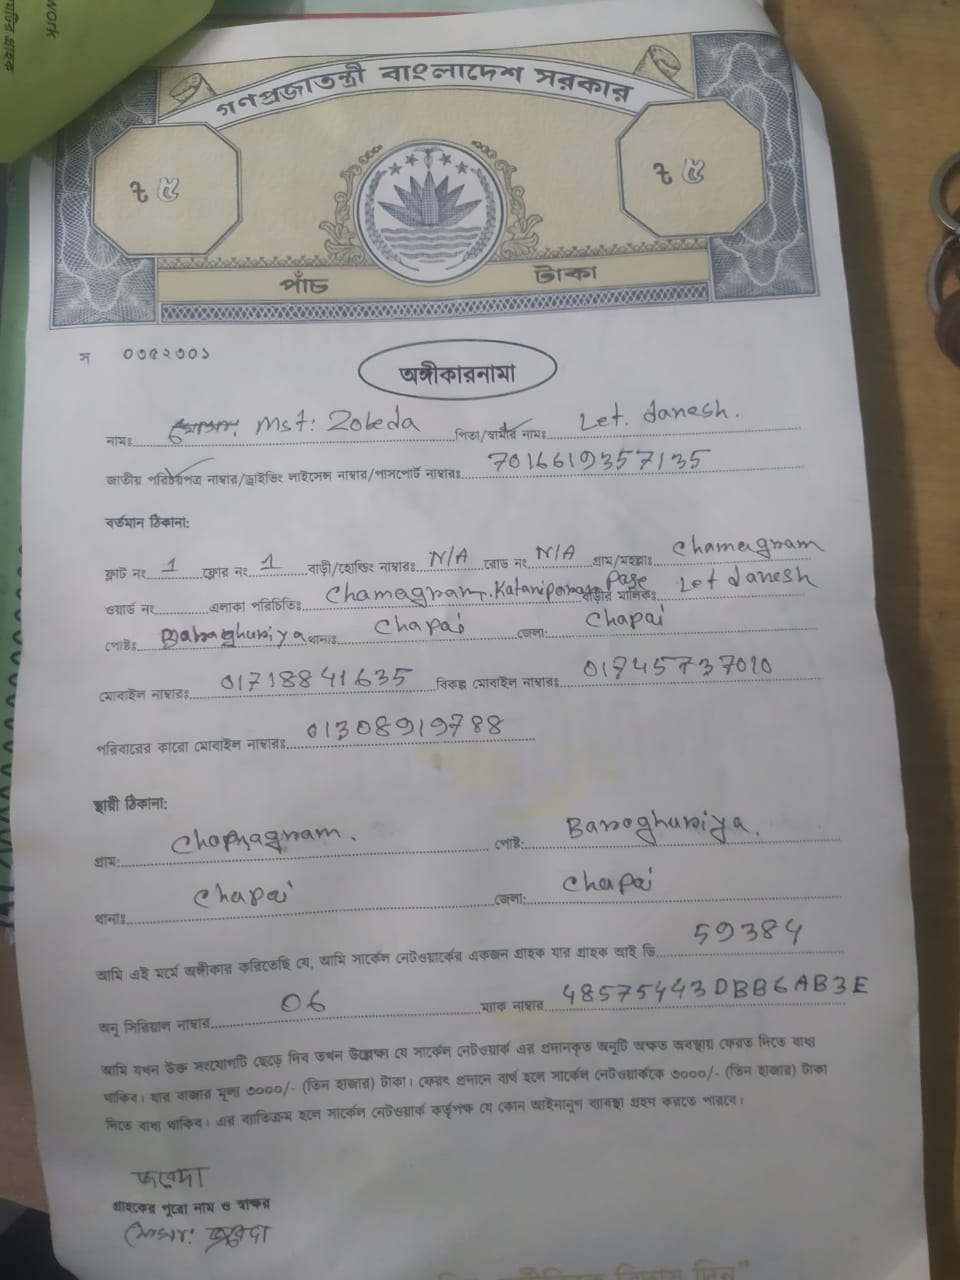 গণপ্রজাতন্ত্রী বাংলাদেশ সরকার
৳ ৫ ৳ ৫
পাঁচ টাকা
স ০৩৫২৩০১
অঙ্গীকারনামা
নামঃ Mst: Zobeda পিতা/স্বামীর নামঃ Let. danesh.
জাতীয় পরিচয়পত্র নাম্বার/ড্রাইভিং লাইসেন্স নাম্বার/পাসপোর্ট নাম্বারঃ 7016619357135
বর্তমান ঠিকানা:
ফ্লাট নং 1 ফ্লোর নং 1 বাড়ী/হোল্ডিং নাম্বারঃ N/A রোড নং N/A গ্রাম/মহল্লাঃ Chamagnam
ওয়ার্ড নং এলাকা পরিচিতিঃ Chamagnam. Katanipara Pase বাড়ীর মালিকঃ Let danesh
পোষ্টঃ থানাঃ Chapai জেলা: Chapai
মোবাইল নাম্বারঃ 01718841635 বিকল্প মোবাইল নাম্বারঃ 01745737020
পরিবারের কারো মোবাইল নাম্বারঃ 01308919788
স্থায়ী ঠিকানা:
গ্রাম: পোষ্ট: Baroghuriya.
থানাঃ Chapai জেলা: Chapai
আমি এই মর্মে অঙ্গীকার করিতেছি যে, আমি সার্কেল নেটওয়ার্কের একজন গ্রাহক যার গ্রাহক আই ডি 59384
অনু সিরিয়াল নাম্বার 06 ম্যাক নাম্বার 48575443DBB6AB3E
আমি যখন উক্ত সংযোগটি ছেড়ে দিব তখন উল্লেক্ষ্য যে সার্কেল নেটওয়ার্ক এর প্রদানকৃত অনুটি অক্ষত অবস্থায় ফেরত দিতে বাধ্য
থাকিব। যার বাজার মূল্য ৩০০০/- (তিন হাজার) টাকা। ফেরৎ প্রদানে ব্যর্থ হলে সার্কেল নেটওয়ার্ককে ৩০০০/- (তিন হাজার) টাকা
দিতে বাধ্য থাকিব। এর ব্যতিক্রম হলে সার্কেল নেটওয়ার্ক কর্তৃপক্ষ যে কোন আইনানুগ ব্যবস্থা গ্রহণ করতে পারবে।
জবেদা
গ্রাহকের পুরো নাম ও স্বাক্ষর
মোসা: